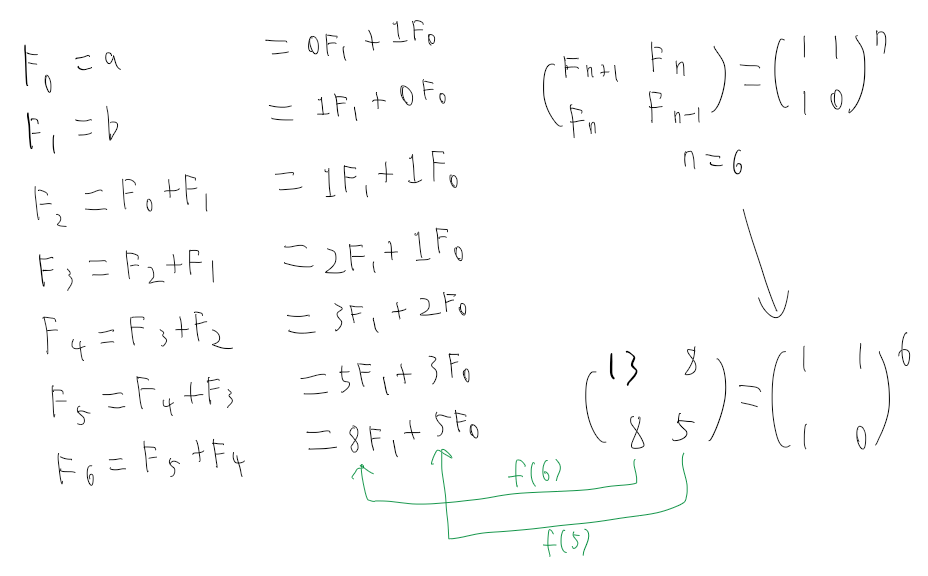 F₀ = a = 0F₁ + 1F₀
F₁ = b = 1F₁ + 0F₀
F₂ = F₀+F₁ = 1F₁ + 1F₀
F₃ = F₂+F₁ = 2F₁ + 1F₀
F₄ = F₃+F₂ = 3F₁ + 2F₀
F₅ = F₄+F₃ = 5F₁ + 3F₀
F₆ = F₅+F₄ = 8F₁ + 5F₀
f(6)
f(5)
(Fn+1 Fn
Fn Fn-1) = (1 1
1 0)ⁿ
n = 6
(13 8
8 5) = (1 1
1 0)⁶